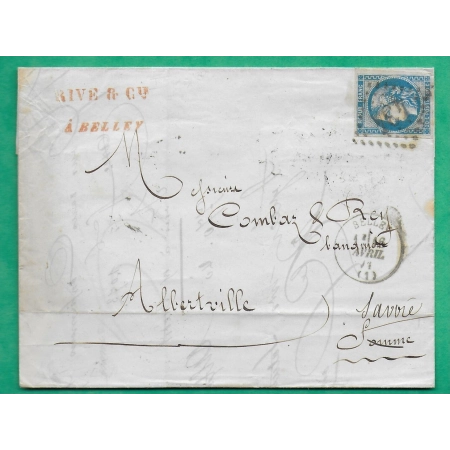 RIVE & Cie
à BELLEY
Messieurs
Combaz & Rey
banquiers
BELLEY
AVRIL
71
(1)
Albertville
Savoie
Somme